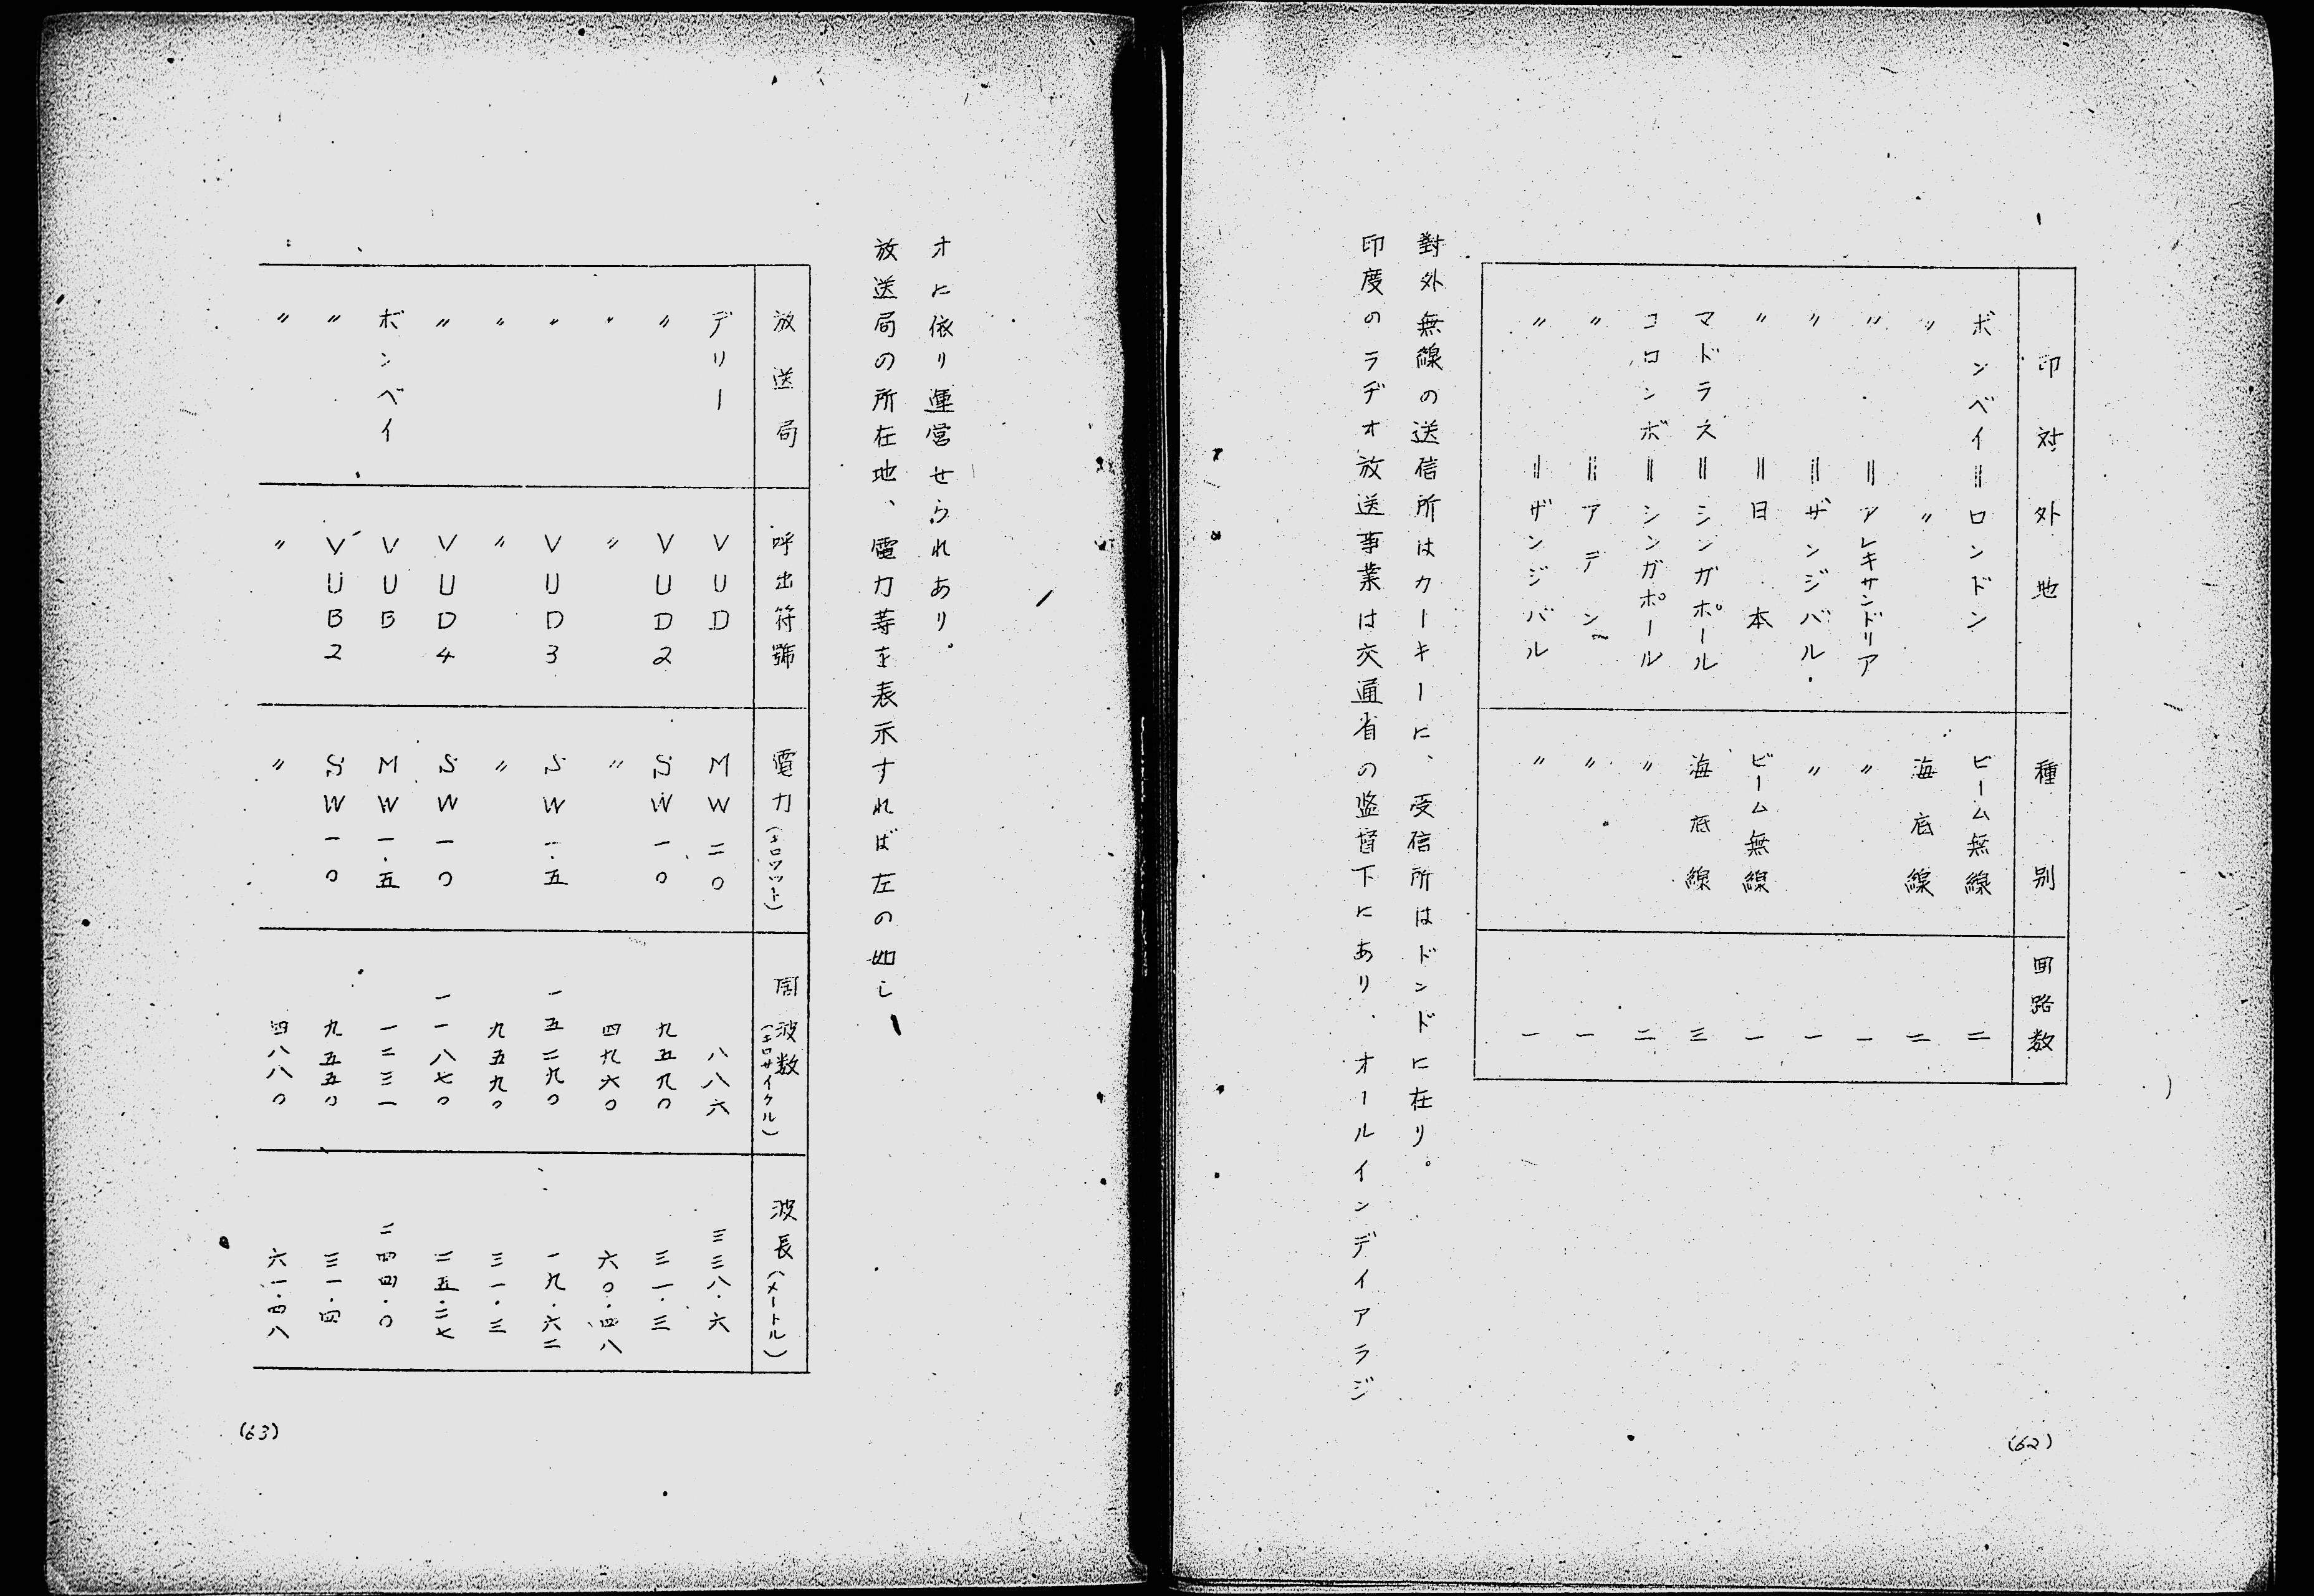 印対外地 種別 回路数
ボンベイ＝ロンドン ビーム無線 二
〃 〃 海底線 二
〃＝アレキサンドリア 〃 一
〃＝ザンジバル 〃 一
〃＝日本 ビーム無線 一
マドラス＝シンガポール 海底線 三
コロンボ＝シンガポール 〃 二
〃＝アデン 〃 一
〃＝ザンジバル 〃 一
對外無線の送信所はカーキーに、受信所はドンドに在り。
印度のラヂオ放送事業は交通省の監督下にあり、オールインデイアラジ
(62)
オに依り運営せられあり。
放送局の所在地、電力等を表示すれば左の如し
放送局 呼出符號 電力(キロワット) 周波数(キロサイクル) 波長(メートル)
デリー VUD MW二〇 八八六 三三八・六
〃 VUD2 SW一〇 九五九〇 三一・三
〃 〃 〃 四九六〇 六〇・四八
〃 VUD3 SW一・五 一五二九〇 一九・六二
〃 〃 〃 九五九〇 三一・三
〃 VUD4 SW一〇 一一八七〇 二五・二七
ボンベイ VUB MW一・五 一二三一 二四四・〇
〃 VUB2 SW一〇 九五五〇 三一・四
〃 〃 〃 四八八〇 六一・四八
(63)